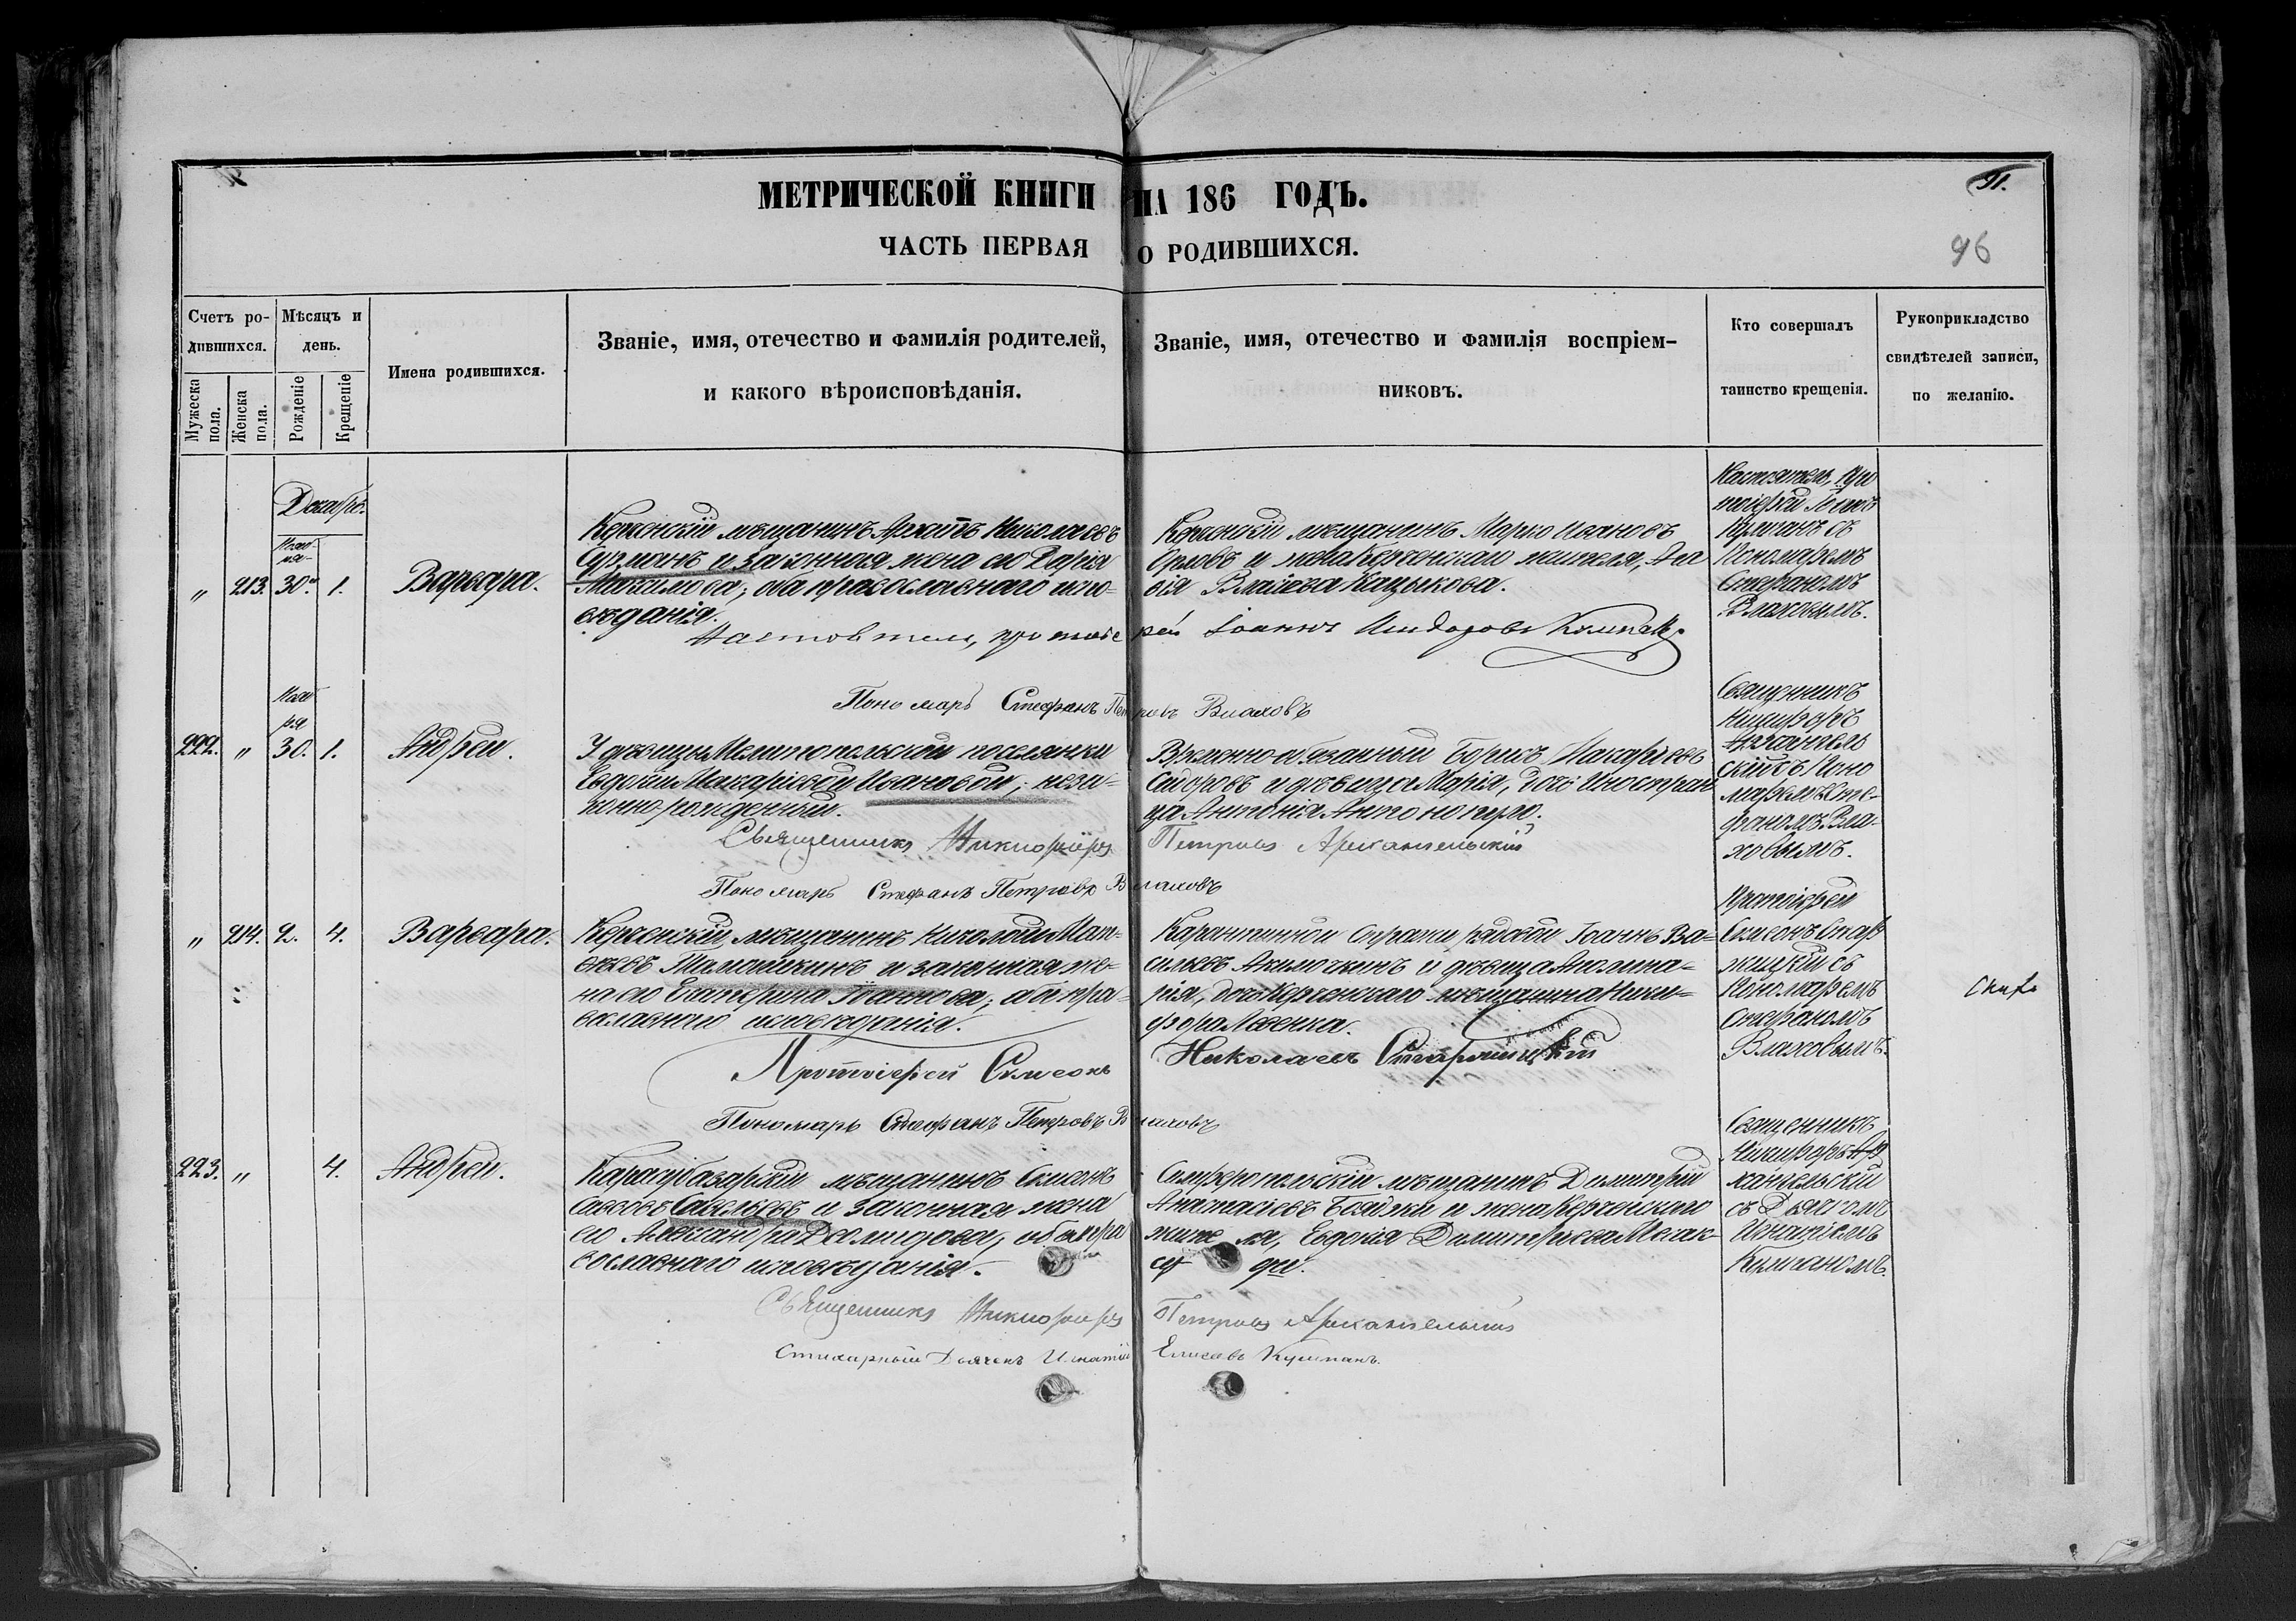 91.
МЕТРИЧЕСКОЙ КНИГИ НА 186 ГОДЪ.
ЧАСТЬ ПЕРВАЯ О РОДИВШИХСЯ.
96
Счетъ родившихся.
Мужеска пола.
Женска пола.
Мѣсяцъ и день.
Рожденіе
Крещеніе
Имена родившихся.
Званіе, имя, отечество и фамилія родителей,
и какого вѣроисповѣданія.
Званіе, имя, отечество и фамилія воспріем-
никовъ.
Кто совершалъ
таинство крещенія.
Рукоприкладство
свидѣтелей записи,
по желанію.
Декабрь.
Нояб-
ря
„ 213. 30. 1. Варвара.
Керченскій мѣщанинъ Николаевъ
и законная жена его Дарія
оба православнаго испо-
вѣданія.
Керченскій мѣщанинъ Марко Ивановъ
Орловъ и жена Керченскаго жителя,
Настоятель, Про
тоіерей Іоаннъ
Кумпанъ съ
Пономаремъ
Стефаномъ
Влаховымъ.
Настоятель, протоіерей Іоаннъ Исидоровъ Кумпанъ
Пономарь Стефанъ Петровъ Влаховъ
Нояб
ря
222. „ 30. 1. Андрей.
У дѣвицы Мелитопольской поселянки
Евдокіи Макаріевой Ивановой; неза-
коннорожденный.
Временнообязанный Борисъ Макаріевъ
Сидоровъ и дѣвица Марія, дочь Иностран
ца Антонія
Священникъ
Никифоръ
Архангель
скій съ Поно
маремъ Сте-
фаномъ Вла-
ховымъ.
Священникъ Никифоръ Петровъ Архангельскій
Пономарь Стефанъ Петровъ Влаховъ
„ 214. 2. 4. Варвара.
Керченскій мѣщанинъ Николай Мат-
вѣевъ и законная же-
на его Екатерина Іоаннова; оба пра-
вославнаго исповѣданія.
Карантинной Стражи рядовой Іоаннъ Ва-
сильевъ Акимочкинъ и дѣвица Аполина-
рія, дочь Керченскаго мѣщанина Ники-
фора
Протоіерей
Симеонъ
съ
Пономаремъ
Стефаномъ
Влаховымъ.
Протоіерей Симеонъ Николаевъ
Пономарь Стефанъ Петровъ Влаховъ
223. „ 4. Андрей.
Карасубазарскій мѣщанинъ Симеонъ
Саввовъ Савельевъ и законная жена
его Александра оба пра
вославнаго исповѣданія.
Симферопольскій мѣщанинъ Димитрій
Анастасіевъ и жена Керченскаго
жителя, Евдокія Димитріева
Священникъ
Никифоръ Ар
хангельскій
съ Дьячкомъ
Игнатіемъ
Кумпаномъ.
Священникъ Никифоръ Петровъ Архангельскій
Стихарный Дьячекъ Игнатій Елисеевъ Кумпанъ.